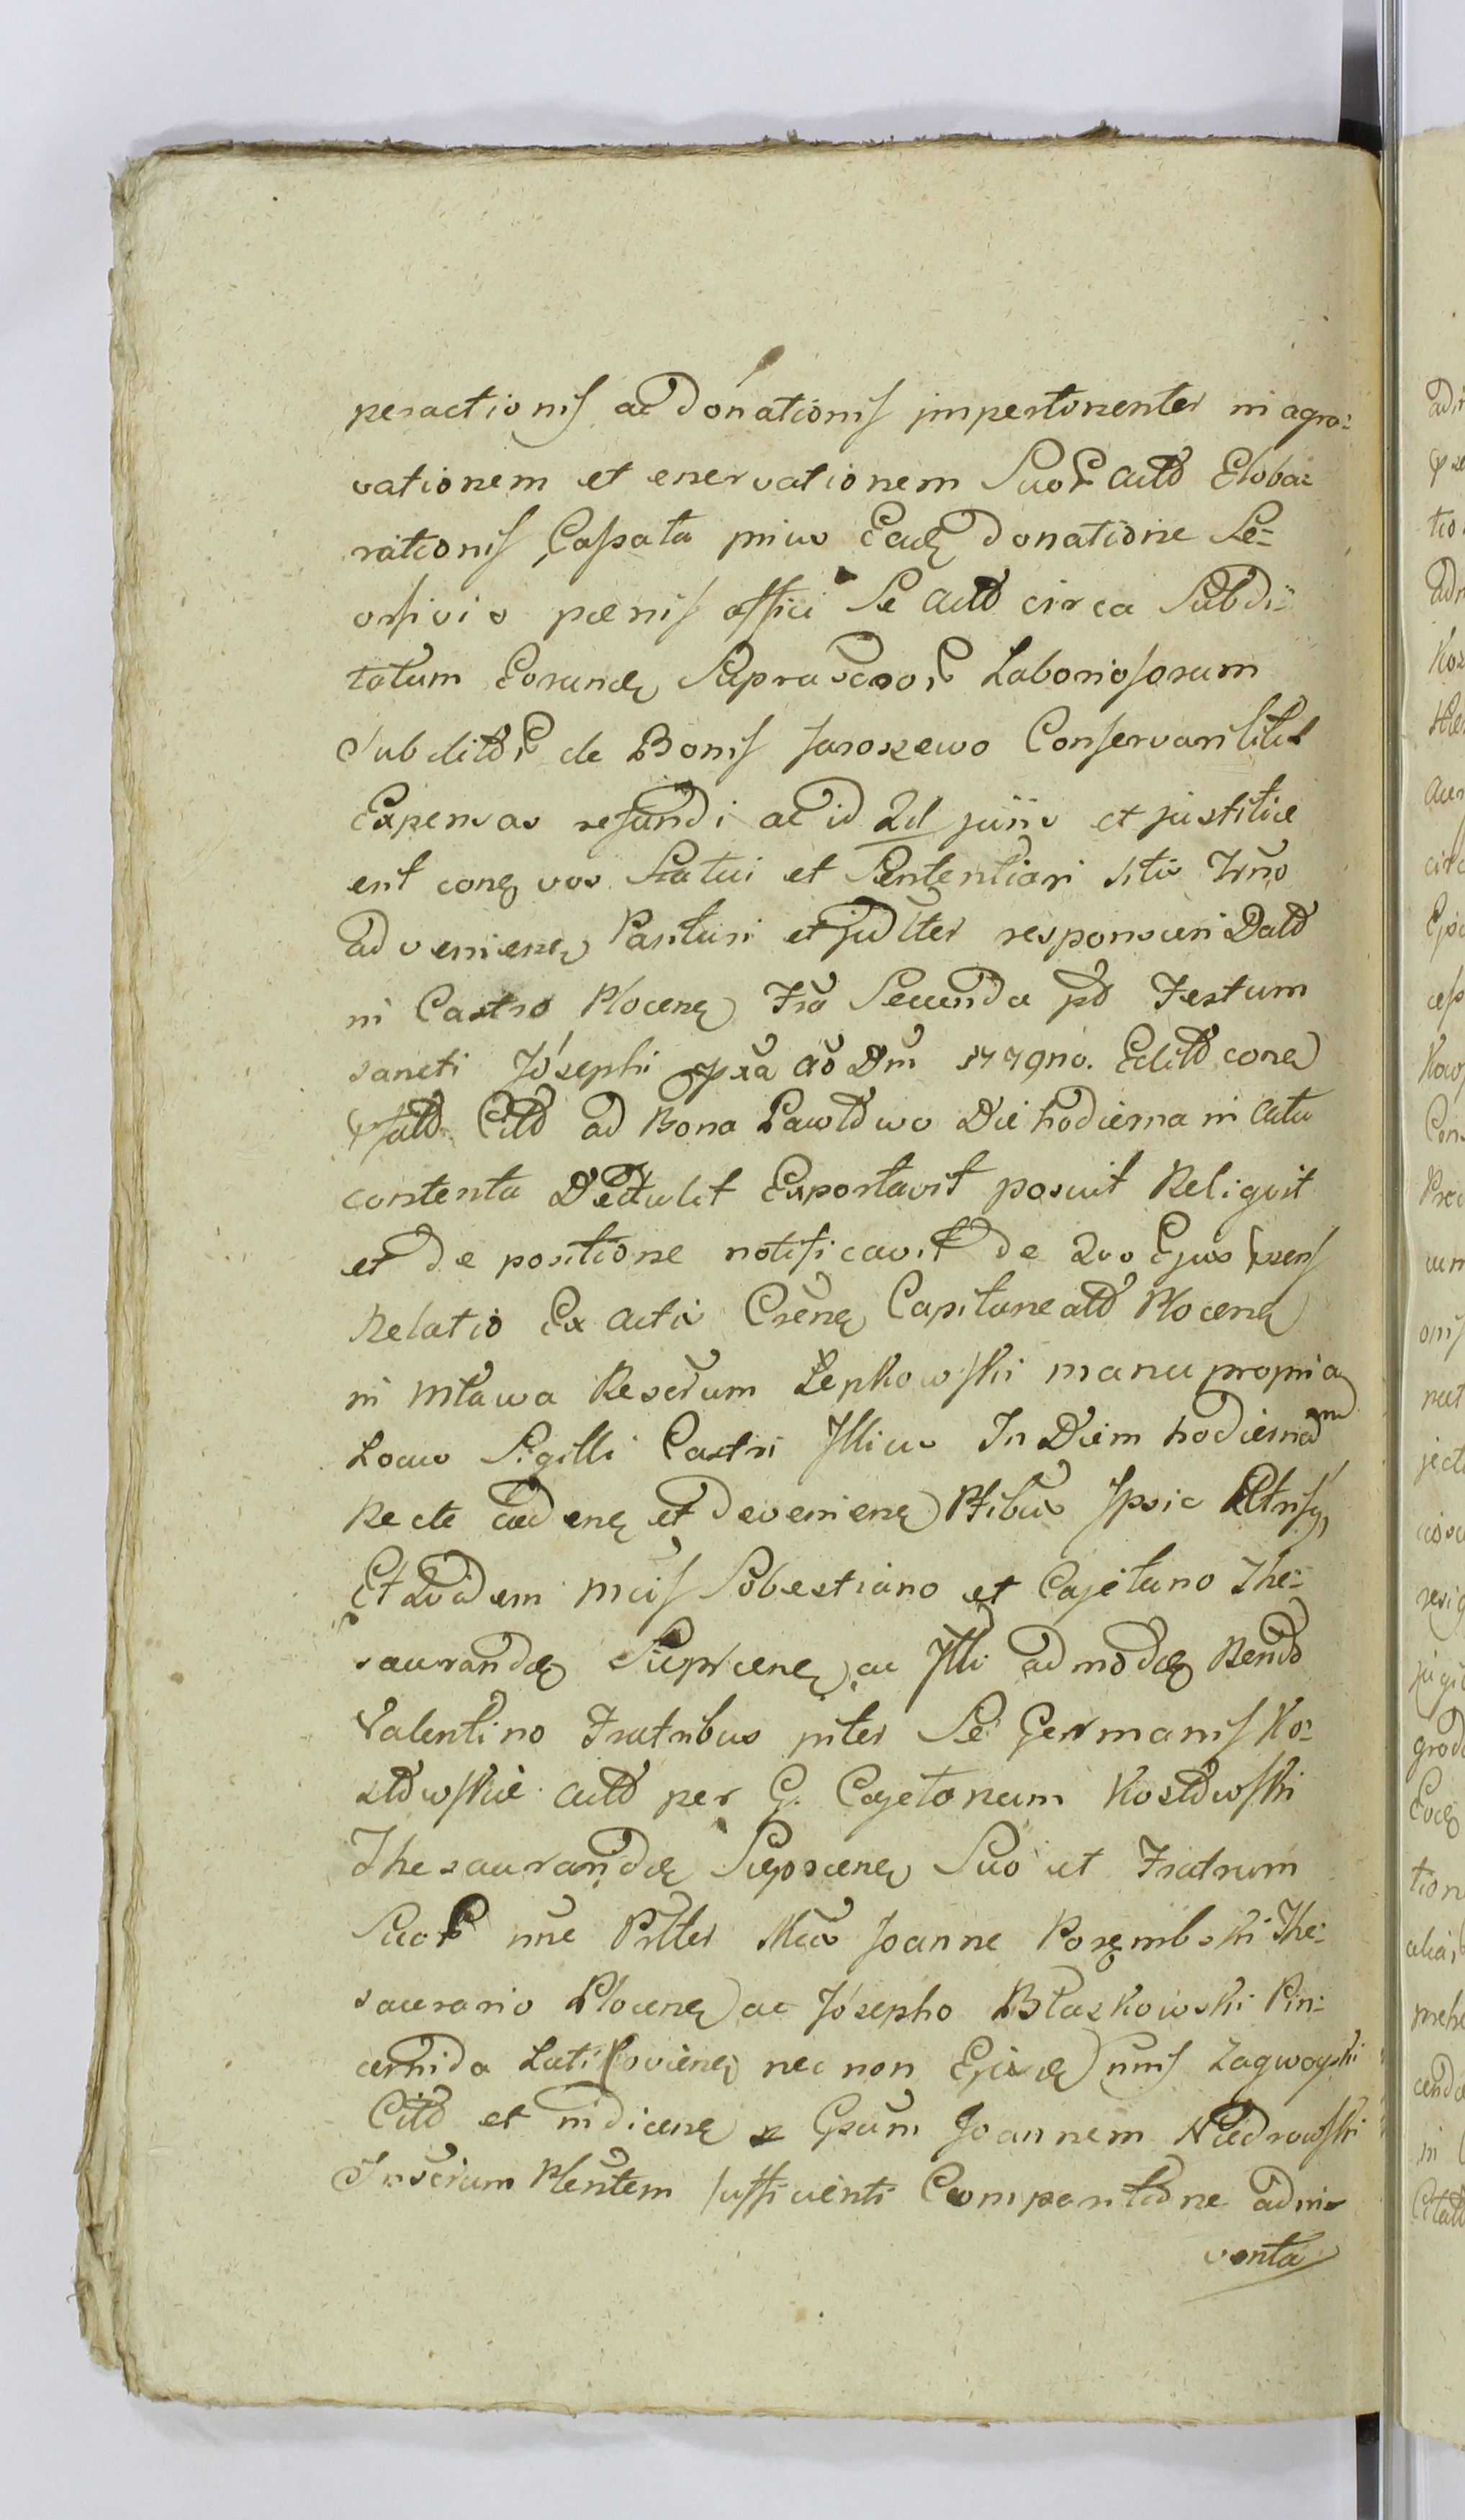 peractionis ac donationis impertinenter in agra-
vationem et enervationem Suor Actor Eloba-
rationis Cassata prius Ead donatione Se-
orsivis pænis affici Se Actor circa Subdi-
tatum Eorund Suprascror Laboriosorum
subditor de Bonis Jaroszewo Conservari litis
Expensas refundi ac id Qd juris et justitiæ
erit conq vos Statui et Sententiari sitis Trno
adveniene Parituri et judlter responsuri Datt
in Castro Plocene Fria Secunda pt Festum
sancti Josephi pxa Ao Dni 1779no. Editt cone
Citt ad Bona Pawłowo Die hodierna in Actu
contenta Detulit Exportavit posuit Reliquit
et de positione notificavit de quo Ejus præns
Relatio Ex Actis Csrene Capitaneatt Plocene
in Mława Rescrum Łepkowski manu propria
Locus Sigilli Castri Illius In Diem hodiernam
Recte cadene et deveniene Ptibus Ipsis Utrisq
Et quidem Mcis Sebestiano et Cajetano The-
saurand Sierpscene ac Illi admod Rendo
Valentino Fratribus inter Se Germanis Ko-
złowskie Actt per G. Cajetanum Kozłowski
Thesaurand Sierpscene Suo et Fratrum
Suor nne Prlter Mcus Joanne Porzembski The-
saurario Plocene ac Josepho Błaszkowski Pin-
cernida Latissoviene nec non
Citt et indicene Gsum Joannem Niedrowski
Inscrum Plentem sufficienti Comparitione adin-
venta